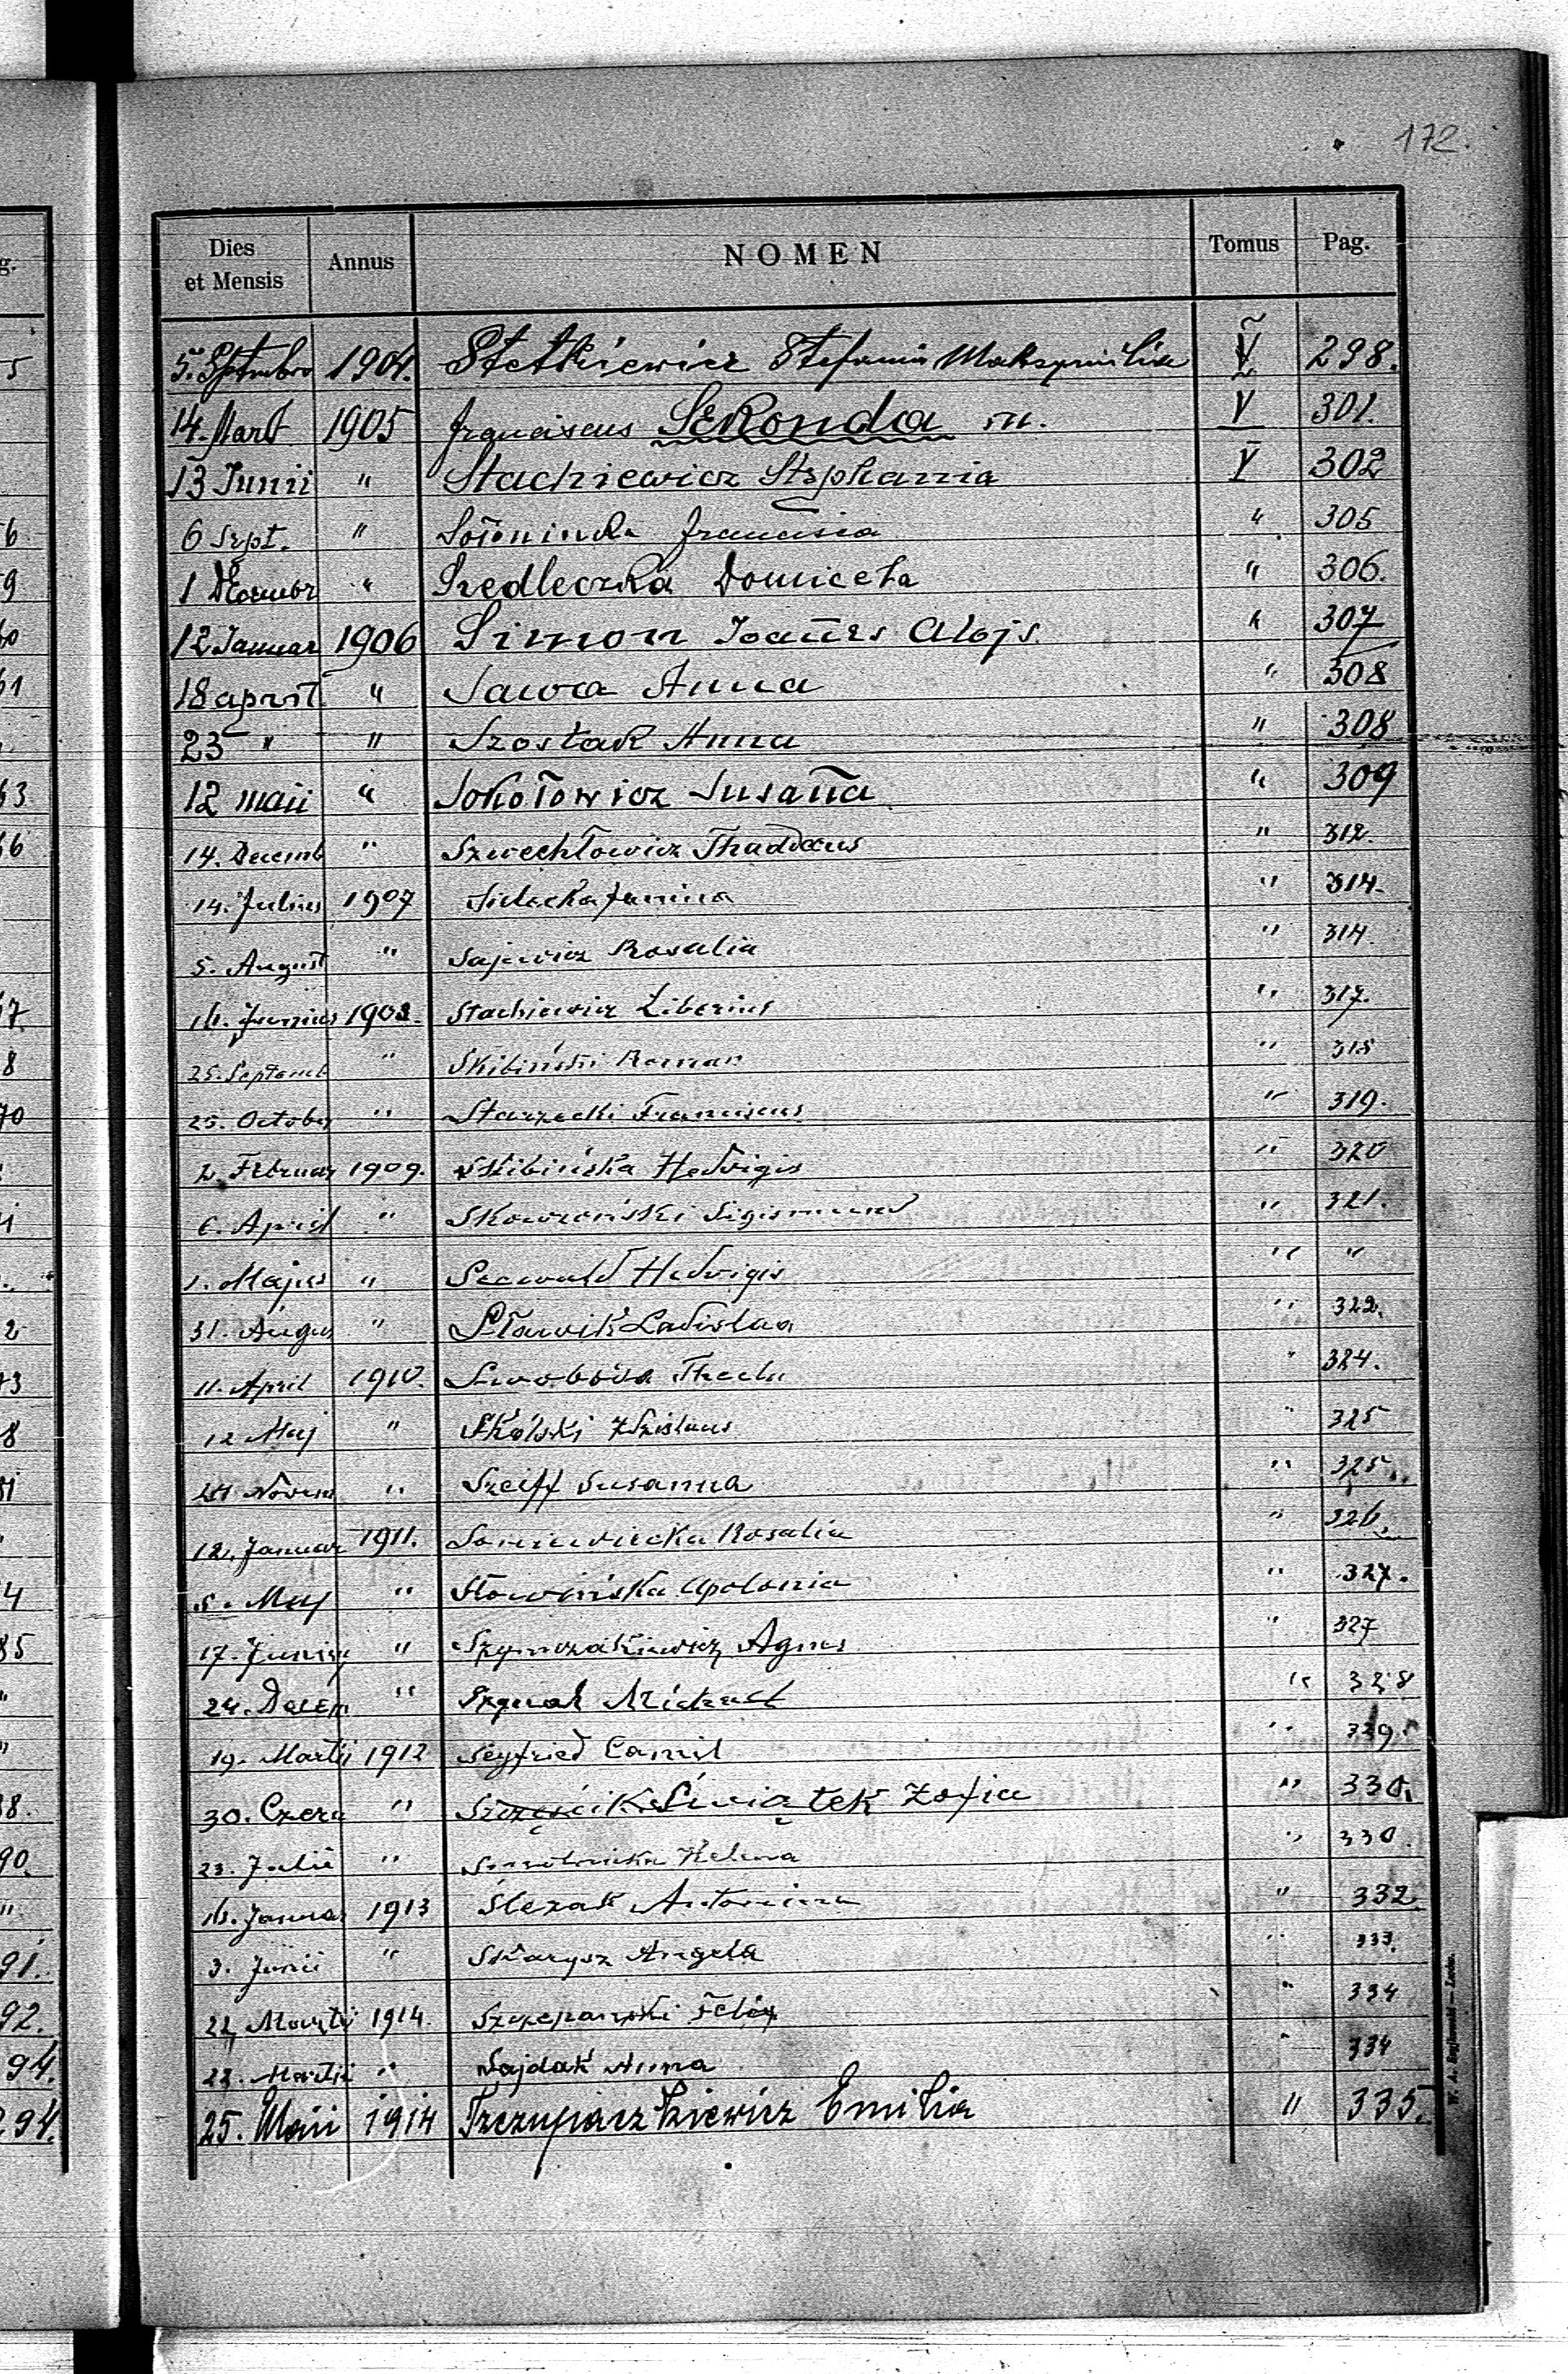 172.
Dies et Mensis Annus NOMEN Tomus Pag.
5. Septembro 1904. Stetkiewicz Stefania Maksymilia V 298.
14. Mart 1905 Franciscus Sekonda m. V 301.
13 Junii " Stachiewicz Stephania V 302
6 Sept. " Francisca " 305
1 Decembr " Siedleczka Domicela " 306.
12 Januar 1906 Simon Joañes Alojs. " 307
18 april " Sawca Anna " 308
23 " " Szostak Anna " 308
12 maii " Sokołowicz Susaña " 309
14. Decemb " Szwechłowicz Thaddaeus " 312.
14. Julius 1907 Sielecka Janina " 314.
5. August " Sajewicz Rosalia " 314.
16. Junius 1908. Stachiewicz Liberius " 317.
25. Septemb " Skibiński Roman " 318
25. October " Starzecki Franciscus " 319.
2. Februar 1909. Skibińska Hedvigis " 320
6. April " Skowroński Sigismund " 321.
1. Majus " Seewald Hedvigis " "
31. Augus " Sławik Ladislaa " 322.
11. April 1910. Swoboda Thecla " 324.
12 Maj " Skólski Zdzislaus " 325
24 Novem " Szeiff Susanna " 325.
12. Januar 1911. Rosalia " 326.
5. Maj " Słowińska Apolonia " 327.
17. Junius " Szymczakiewicz Agnes " 327
24. Decem " Michael " 328
19. Martii 1912 Segfried Camil " 329.
30. Czerw " Szczęścik Świątek Zofia " 330.
23. Julii " Helena " 330.
16. Januar 1913 Ślezak Antonina " 332
3. Junii " Skarysz Angela " 333.
22 Martii 1914. Szczepański Felix " 334
23. Martii " Sajdak Anna " 334
25. Maii 1914 Emilia " 335.